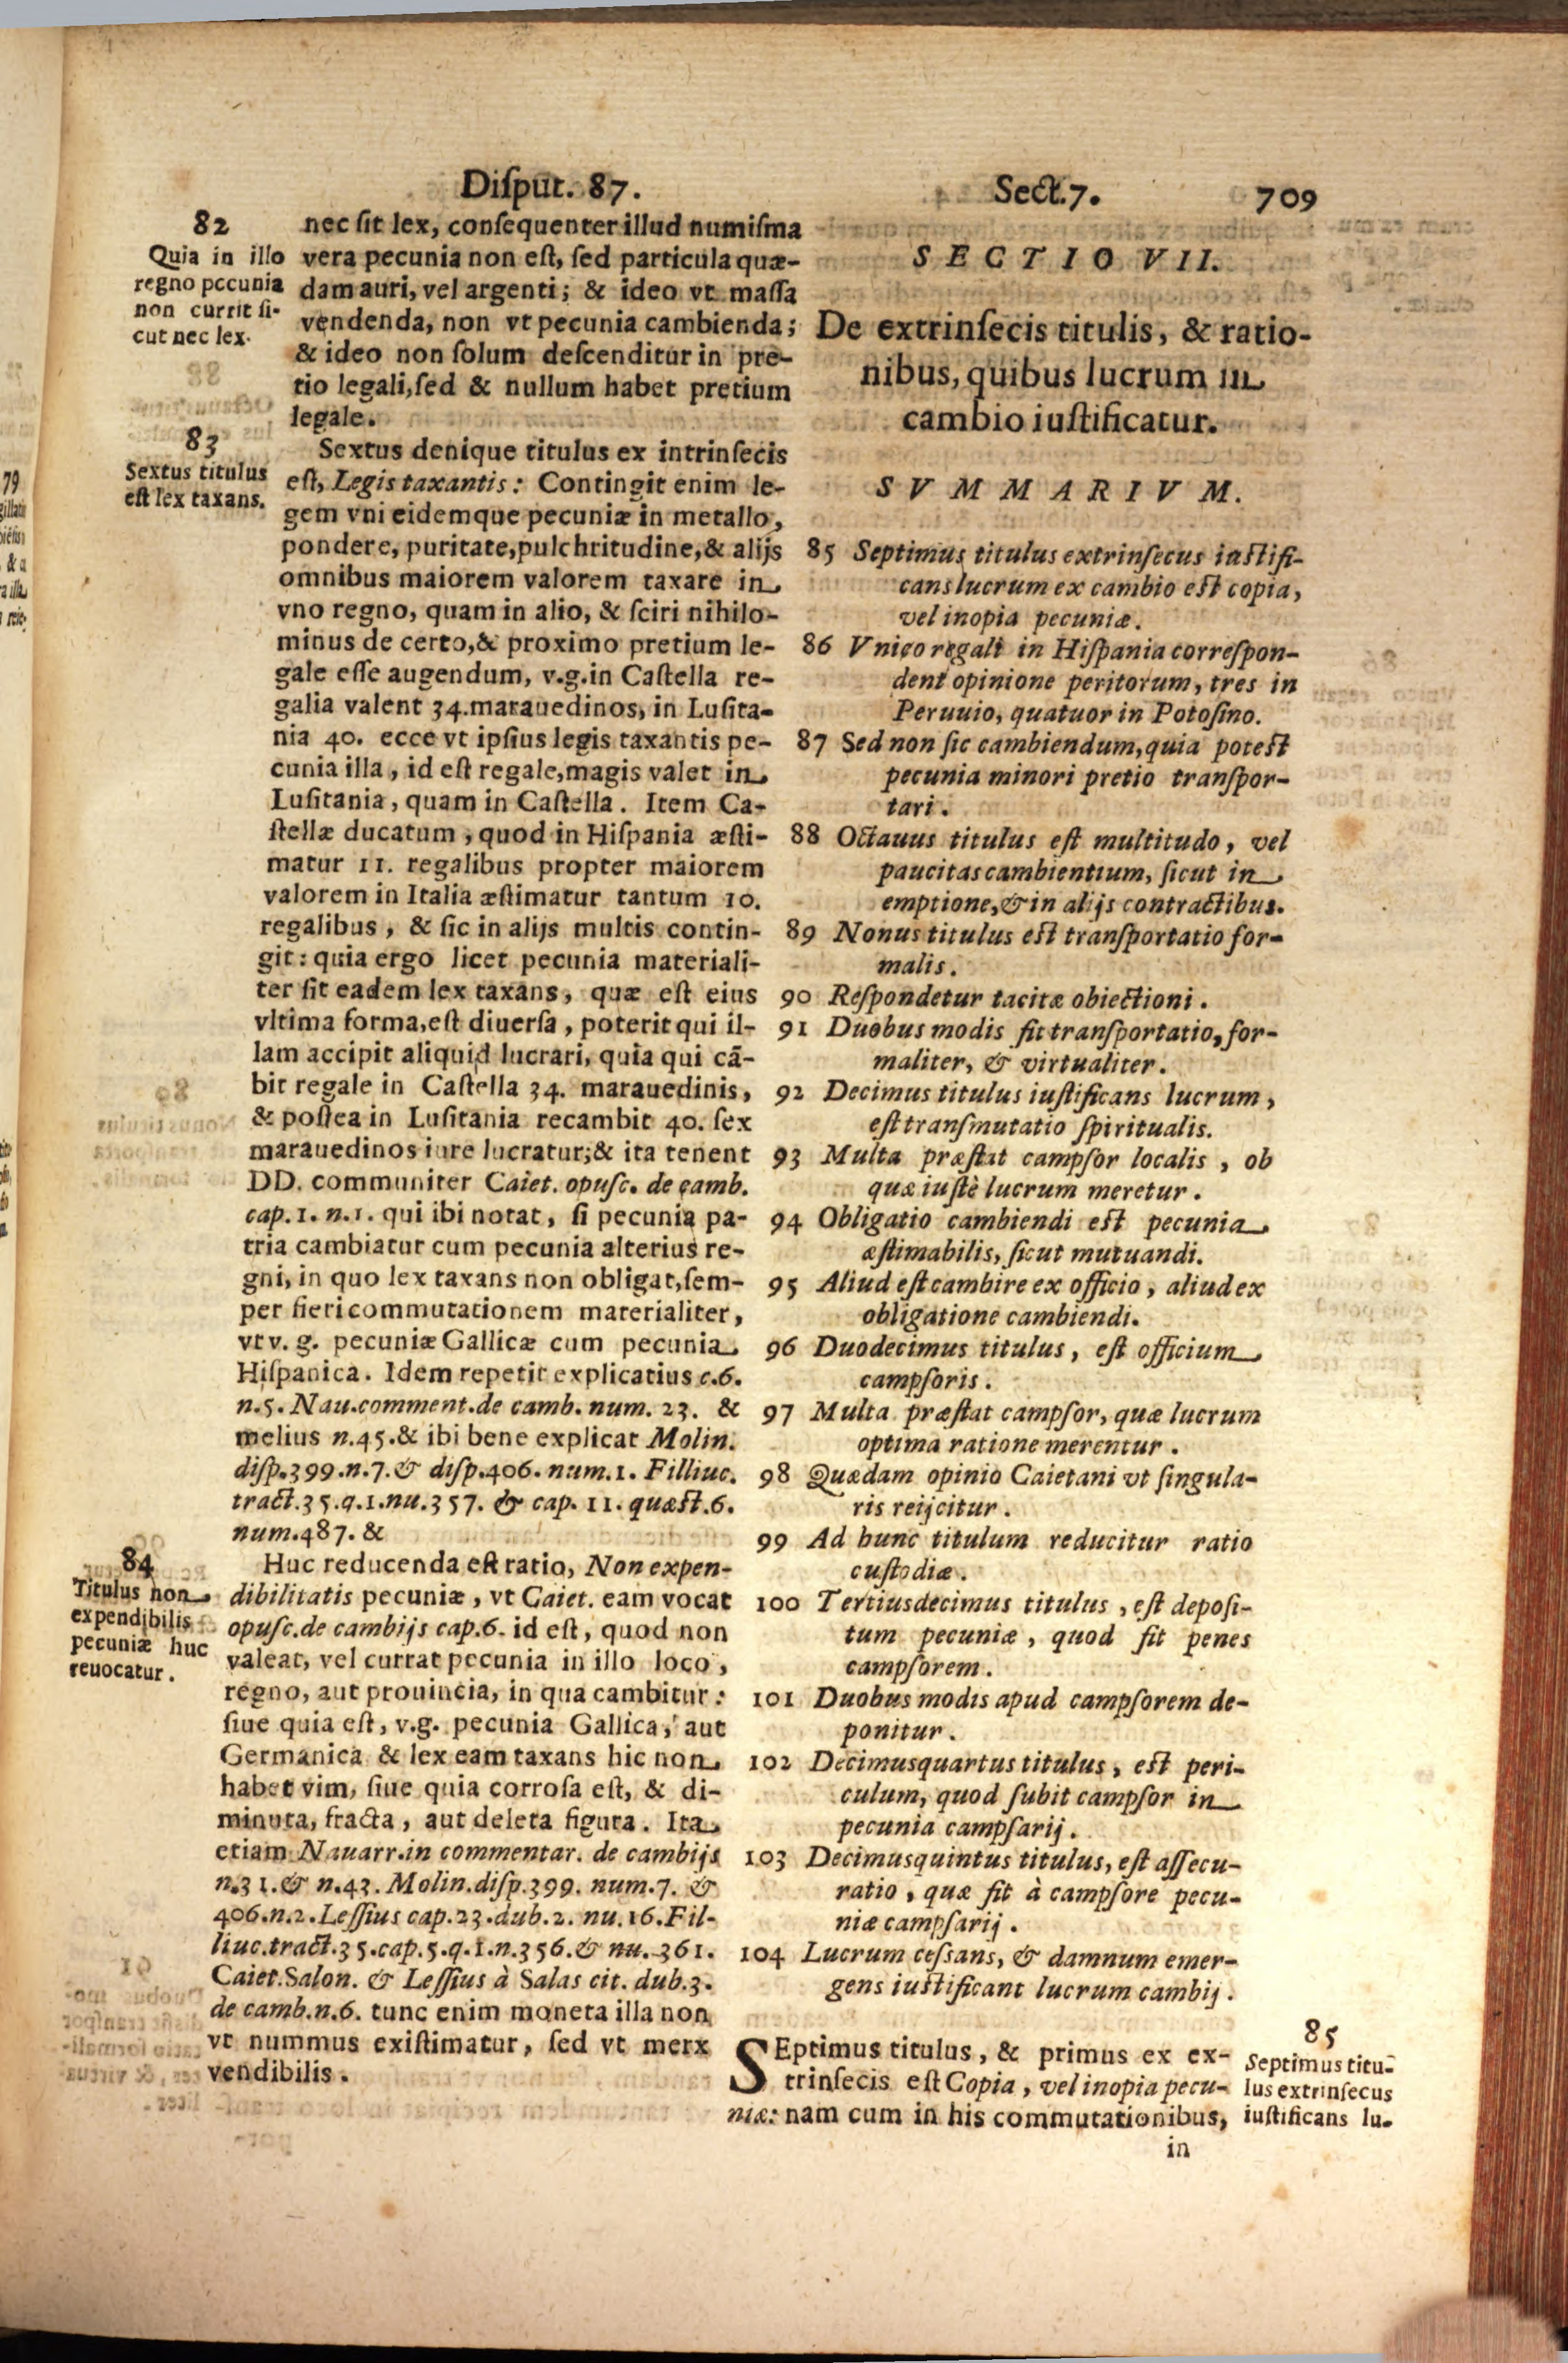 Diſput. 87.
Sect. 7. 709
82
Quia in illo
regno pecunia
non currit ſi-
cut nec lex.
nec ſit lex, conſequenter illud numiſma
vera pecunia non eſt, ſed particula quæ-
dam auri, vel argenti; & ideo vt maſſa
vendenda, non vt pecunia cambienda;
& ideo non ſolum deſcenditur in pre-
tio legali, ſed & nullum habet pretium
legale.
83
Sextus titulus
eſt lex taxans.
Sextus denique titulus ex intrinſecis
eſt, Legis taxantis: Contingit enim le-
gem vni eidemque pecuniæ in metallo,
pondere, puritate, pulchritudine, & alijs
omnibus maiorem valorem taxare in
vno regno, quam in alio, & ſciri nihilo-
minus de certo, & proximo pretium le-
gale eſſe augendum, v.g. in Caſtella re-
galia valent 34. marauedinos, in Luſita-
nia 40. ecce vt ipſius legis taxantis pe-
cunia illa, id eſt regale, magis valet in
Luſitania, quam in Caſtella. Item Ca-
ſtellæ ducatum, quod in Hiſpania æſti-
matur 11. regalibus propter maiorem
valorem in Italia æſtimatur tantum 10.
regalibus, & ſic in alijs multis contin-
git: quia ergo licet pecunia materiali-
ter ſit eadem lex taxans, quæ eſt eius
vltima forma, eſt diuerſa, poterit qui il-
lam accipit aliquid lucrari, quia qui cã-
bit regale in Caſtella 34. marauedinis,
& poſtea in Luſitania recambit 40. ſex
marauedinos iure lucratur; & ita tenent
DD. communiter Caiet. opuſc. de camb.
cap. 1. n. 1. qui ibi notat, ſi pecunia pa-
tria cambiatur cum pecunia alterius re-
gni, in quo lex taxans non obligat, ſem-
per fieri commutationem materialiter,
vt v. g. pecuniæ Gallicæ cum pecunia
Hiſpanica. Idem repetit explicatius c. 6.
n. 5. Nau. comment. de camb. num. 23. &
melius n. 45. & ibi bene explicat Molin.
diſp. 399. n. 7. & diſp. 406. num. 1. Filliuc.
tract. 35. q. 1. nu. 357. & cap. 11. quæſt. 6.
num. 487. &
84
Titulus non
expendibilis
pecuniæ huc
reuocatur.
Huc reducenda eſt ratio, Non expen-
dibilitatis pecuniæ, vt Caiet. eam vocat
opuſc. de cambijs cap. 6. id eſt, quod non
valeat, vel currat pecunia in illo loco,
regno, aut prouincia, in qua cambitur:
ſiue quia eſt, v.g. pecunia Gallica, aut
Germanica & lex eam taxans hic non
habet vim, ſiue quia corroſa eſt, & di-
minuta, fracta, aut deleta figura. Ita
etiam Nauarr. in commentar. de cambijs
n. 31. & n. 43. Molin. diſp. 399. num. 7. &
406. n. 2. Leſſius cap. 23. dub. 2. nu. 16. Fil-
liuc. tract. 35. cap. 5. q. 1. n. 356. & nu. 361.
Caiet. Salon. & Leſſius à Salas cit. dub. 3.
de camb. n. 6. tunc enim moneta illa non
vt nummus exiſtimatur, ſed vt merx
vendibilis.
SECTIO VII.
De extrinſecis titulis, & ratio-
nibus, quibus lucrum in
cambio iuſtificatur.
SVMMARIVM.
85 Septimus titulus extrinſecus iuſtifi-
cans lucrum ex cambio eſt copia,
vel inopia pecuniæ.
86 Vnico regali in Hiſpania correſpon-
dent opinione peritorum, tres in
Peruuio, quatuor in Potoſino.
87 Sed non ſic cambiendum, quia poteſt
pecunia minori pretio tranſpor-
tari.
88 Octauus titulus eſt multitudo, vel
paucitas cambientium, ſicut in
emptione, & in alijs contractibus.
89 Nonus titulus eſt tranſportatio for-
malis.
90 Reſpondetur tacitæ obiectioni.
91 Duobus modis fit tranſportatio, for-
maliter, & virtualiter.
92 Decimus titulus iuſtificans lucrum,
eſt tranſmutatio ſpiritualis.
93 Multa præſtat campſor localis, ob
quæ iuſtè lucrum meretur.
94 Obligatio cambiendi eſt pecunia
æſtimabilis, ſicut mutuandi.
95 Aliud eſt cambire ex officio, aliud ex
obligatione cambiendi.
96 Duodecimus titulus, eſt officium
campſoris.
97 Multa præſtat campſor, quæ lucrum
optima ratione merentur.
98 Quædam opinio Caietani vt ſingula-
ris reijcitur.
99 Ad hunc titulum reducitur ratio
cuſtodiæ.
100 Tertiusdecimus titulus, eſt depoſi-
tum pecuniæ, quod fit penes
campſorem.
101 Duobus modis apud campſorem de-
ponitur.
102 Decimusquartus titulus, eſt peri-
culum, quod ſubit campſor in
pecunia campſarij.
103 Decimusquintus titulus, eſt aſſecu-
ratio, quæ fit à campſore pecu-
niæ campſarij.
104 Lucrum ceſsans, & damnum emer-
gens iuſtificant lucrum cambij.
SEptimus titulus, & primus ex ex-
trinſecis eſt Copia, vel inopia pecu-
niæ: nam cum in his commutationibus,
85
Septimus titu-
lus extrinſecus
iuſtificans lu-
in